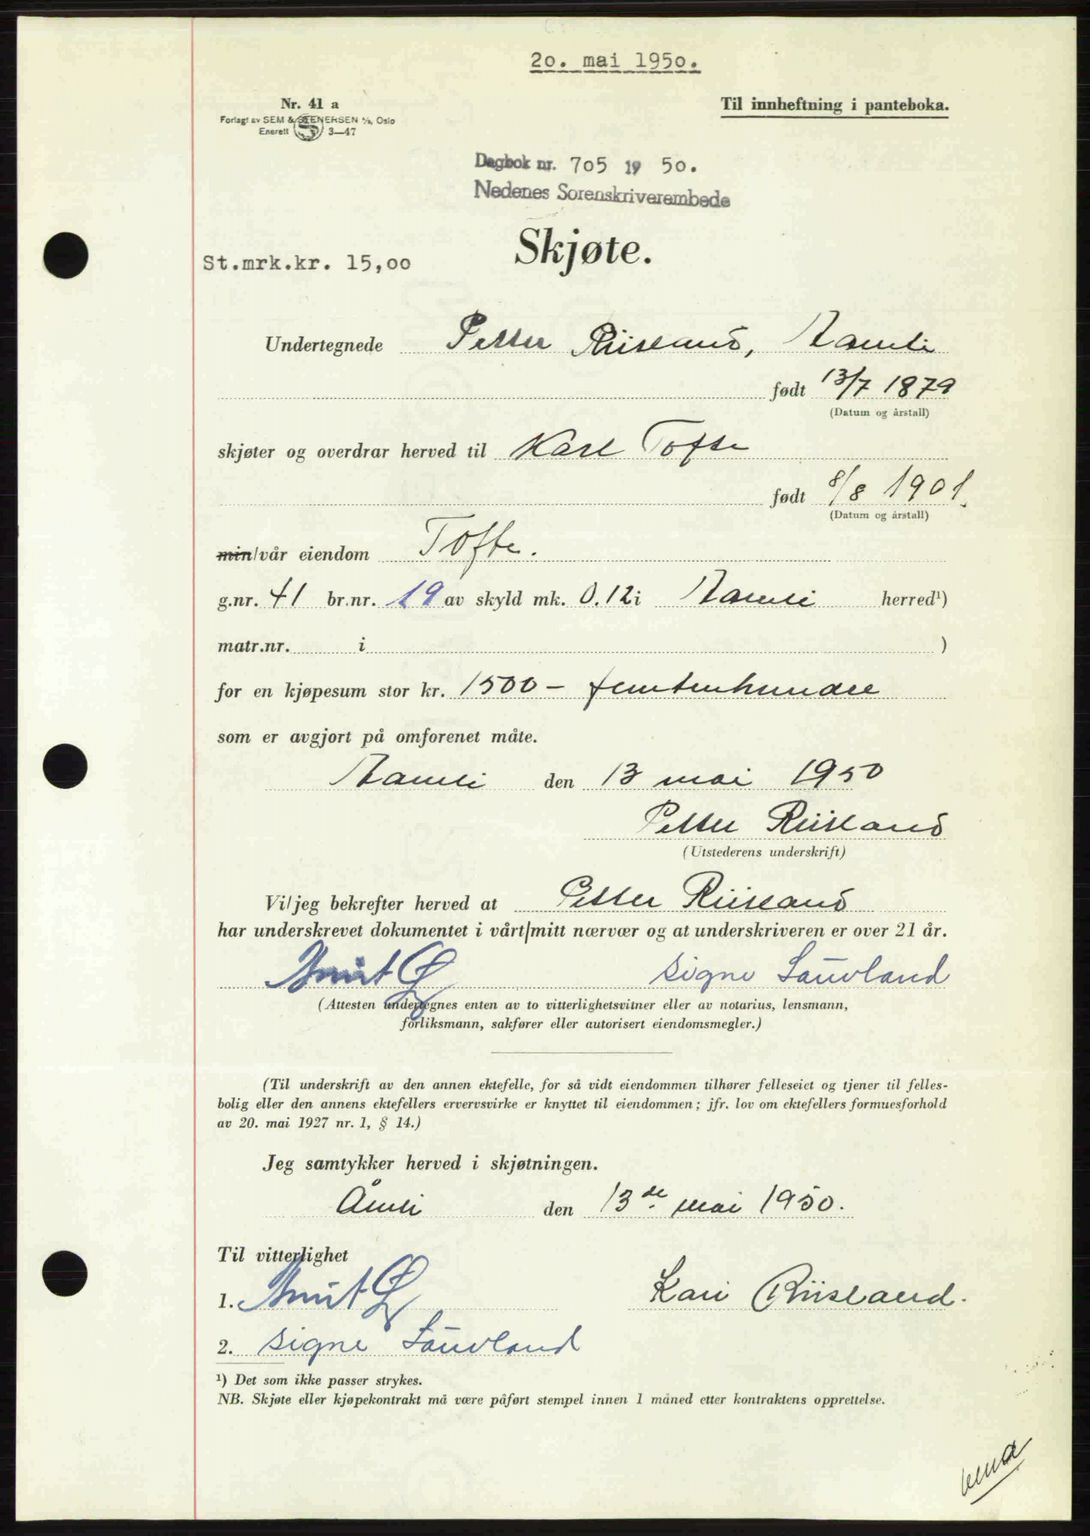 20. mai 1950.
Nr. 41 a
Til innheftning i panteboka.
Forlagt av SEM & STENERSEN A/S, Oslo
Enerett S 3—47
Dagbok nr. 705 19 50.
Nedenes Sorenskriverembede
Skjøte.
St.mrk.kr. 15,00
Undertegnede Petter Riisland, Aamli
født 13/7 1879
(Datum og årstall)
skjøter og overdrar herved til Karl Tofte
født 8/8 1901.
(Datum og årstall)
min/vår eiendom Tofte.
g.nr. 41 br.nr. 19 av skyld mk. 0.12 i Aamli herred¹)
matr.nr. i )
for en kjøpesum stor kr. 1500 – femtenhundre
som er avgjort på omforenet måte.
Aamli den 13 mai 1950
Petter Riisland
(Utstederens underskrift)
Vi/jeg bekrefter herved at Petter Riisland
har underskrevet dokumentet i vårt/mitt nærvær og at underskriveren er over 21 år.
Signe Lauvland
(Attesten undertegnes enten av to vitterlighetsvitner eller av notarius, lensmann,
forliksmann, sakfører eller autorisert eiendomsmegler.)
(Til underskrift av den annen ektefelle, for så vidt eiendommen tilhører felleseiet og tjener til felles-
bolig eller den annens ektefellers ervervsvirke er knyttet til eiendommen; jfr. lov om ektefellers formuesforhold
av 20. mai 1927 nr. 1, § 14.)
Jeg samtykker herved i skjøtningen.
Åmli den 13de mai 1950.
Til vitterlighet
1. Kari Riisland.
2. Signe Lauvland
¹) Det som ikke passer strykes.
NB. Skjøte eller kjøpekontrakt må være påført stempel innen 1 måned etter kontraktens opprettelse.
vend